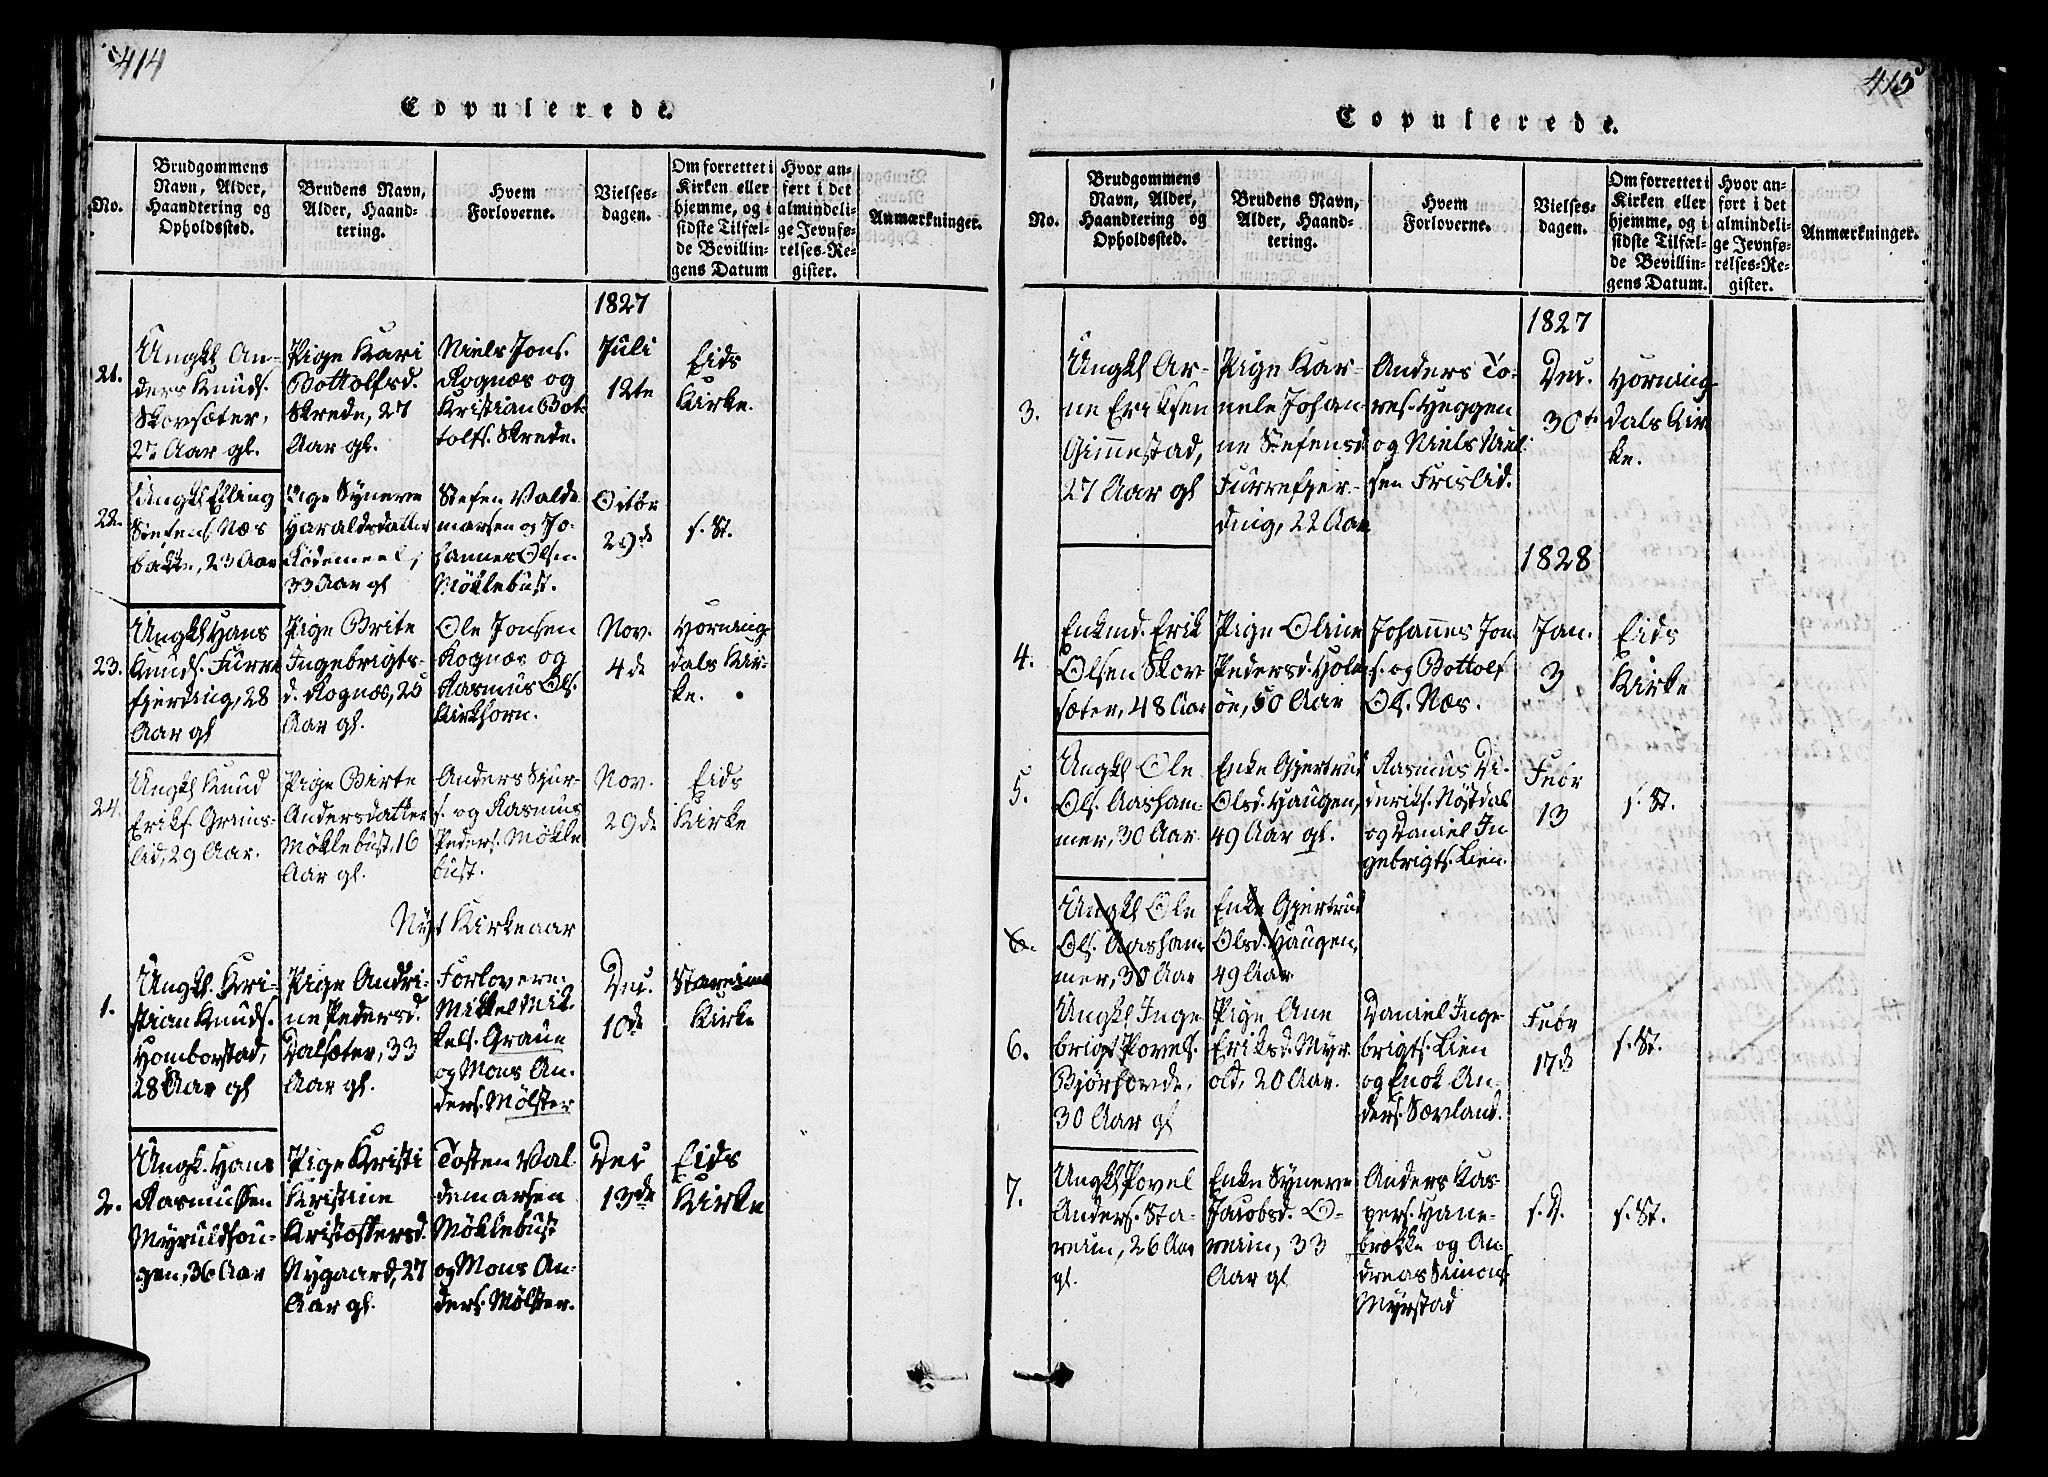 414
Copulerede.
No.
Brudgommens
Navn, Alder,
Haandtering og
Opholdssted.
Brudens Navn,
Alder, Haand-
tering.
Hvem
Forloverne.
Vielses-
dagen.
Om forrettet i
Kirken eller
hjemme, og i
sidste Tilfæl-
de Bevillin-
gens Datum
Hvor an-
ført i det
almindeli-
ge Jevnfø-
relses-Re-
gister.
Anmærkninger.
1827
21.
Ungkl An-
ders Knuds.
Skovsæter,
27 Aar gl.
Pige Kari
Bottolfsd.
Skrede, 27
Aar gl.
Niels Jons.
Rognæs og
Kristian Bot-
tolfs. Skrede.
Juli
12te
Eids
Kirke.
22.
Ungkl Elling
Stefens. Næs
bakke, 23 Aar
Pige Synneve
Haraldsdatter
33 Aar gl
Stefen Valde
marsen og Jo-
hannes Olsen
Möklebust.
Octbr
29de
s. St.
23.
Ungkl Hans
Knuds. Furre
fjerding, 28
Aar gl
Pige Brite
Ingebrigts-
d. Rognæs, 25
Aar gl.
Ole Jonsen
Rognæs og
Rasmus Ols.
Kirkhorn.
Nov.
4de
Horning-
dals Kir-
ke.
24.
Ungkl Knud
Eriks. Grims-
lid, 29 Aar.
Pige Birte
Andersdatter
Möklebust, 16
Aar gl.
Anders Sjur-
s. og Rasmus
Peders. Mökle
bust.
Nov.
29de
Eids
Kirke
Nyt Kirkeaar
1.
Ungkl. Kri-
stian Knuds.
Homborstad,
28 Aar gl
Pige Andri-
ne Pedersd.
Dalsæter, 33
Aar gl.
Forlovere:
Mikkel Mik-
kels. Graue
og Mons An-
ders. Mölster
Dec.
10de
Stareims
Kirke
2.
Ungk. Hans
Rasmussen
Myruldhou-
gen, 36 Aar
Pige Kristi
Kristine
Kristoffersd.
Nygaard, 27
Aar gl.
Tosten Val-
demarsen
Möklebust
og Mons An-
ders. Mölster.
Dec
13de
Eids
Kirke
415
Copulerede.
No.
Brudgommens
Navn, Alder,
Haandtering og
Opholdssted.
Brudens Navn,
Alder, Haand-
tering.
Hvem
Forloverne.
Vielses-
dagen.
Om forrettet i
Kirken eller
hjemme, og i
sidste Tilfæl-
de Bevillin-
gens Datum.
Hvor an-
ført i det
almindeli-
ge Jevnfø-
relses-Re-
gister.
Anmærkninger.
1827
3.
Ungkl Ar-
ne Eriksen
Gimmestad,
27 Aar gl
Pige Kar-
nele Johan-
ne Stefensd
Furrefjer-
ding, 22 Aar
Anders To-
res. Heggen
og Niels Niel-
sen Frislid.
Dec.
30te
Horning-
dals Kir-
ke.
1828
4.
Enkmd. Erik
Olsen Skov
sæter, 48 Aar
Pige Oline
Pedersd. Holm
öe, 50 Aar
Johannes Jon
s. og Bottolf
Ols. Næs.
Jan.
3
Eids
Kirke
5.
Ungkl Ole
Ols. Aasham-
mer, 30 Aar
Enke Gjertrud
Olsd. Haugen,
49 Aar gl.
Rasmus Di-
deriks. Nöstdal
og Daniel In
gebrigts. Lien.
Febr
13
s. St.
6.
Ungkl Ole
Ols. Aasham
mer, 30 Aar
Enke Gjertrud
Olsd. Haugen,
49 Aar
6.
Ungkl Inge
brigt Povels.
Bjørhovde,
30 Aar gl
Pige Ane
Eriksd. Myr
old, 20 Aar.
Daniel Inge-
brigts. Lien
og Enok An-
ders. Sævland.
Febr
17de
s. St.
7.
Ungkl Povel
Anders. Sta-
reim, 26 Aar
gl.
Enke Synneve
Jacobsd. O-
reim, 33
Aar gl
Anders Kas-
pers. Hane-
brække og An-
dreas Simons.
Myrstad
s. D.
s. St.